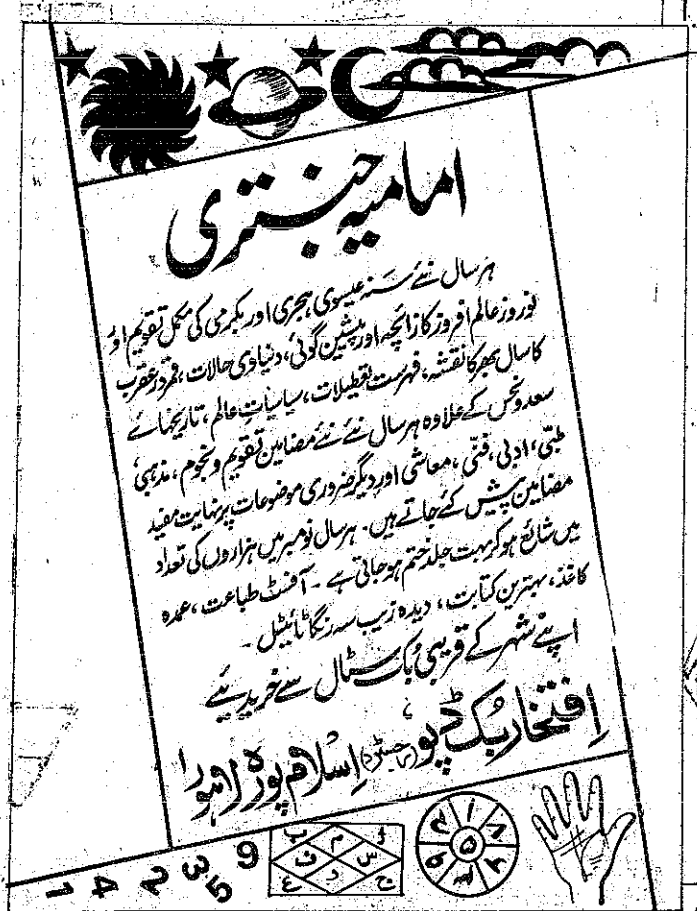 امامیہ جنتری
ہر سال نئے سَنہ عیسوی، ہجری اور بکرمی کی مکمل تقویم اور
نوروز عالم افروز کا زائچہ اور پیشین گوئی، دنیاوی حالات، قمر در عقرب
کا سال بھر کا نقشہ، فہرست تعطیلات، سیاسیاتِ عالم، تاریخہائے
سعد و نحس کے علاوہ ہر سال نئے نئے مضامین تقویم و نجوم، مذہبی،
طبّی، ادبی، فنّی، معاشی اور دیگر ضروری موضوعات پر نہایت مفید
مضامین پیش کئے جاتے ہیں۔ ہر سال نومبر میں ہزاروں کی تعداد
میں شائع ہو کر بہت جلد ختم ہو جاتی ہے۔ آفسٹ طباعت، عمدہ
کاغذ، بہترین کتابت، دیدہ زیب سہ رنگا ٹائیٹل۔
اپنے شہر کے قریبی بُک سٹال سے خریدیئے
اِفتخار بُک ڈپو (رجسٹرڈ) اِسلام پورہ لاہور
1 4 2 3 5 9